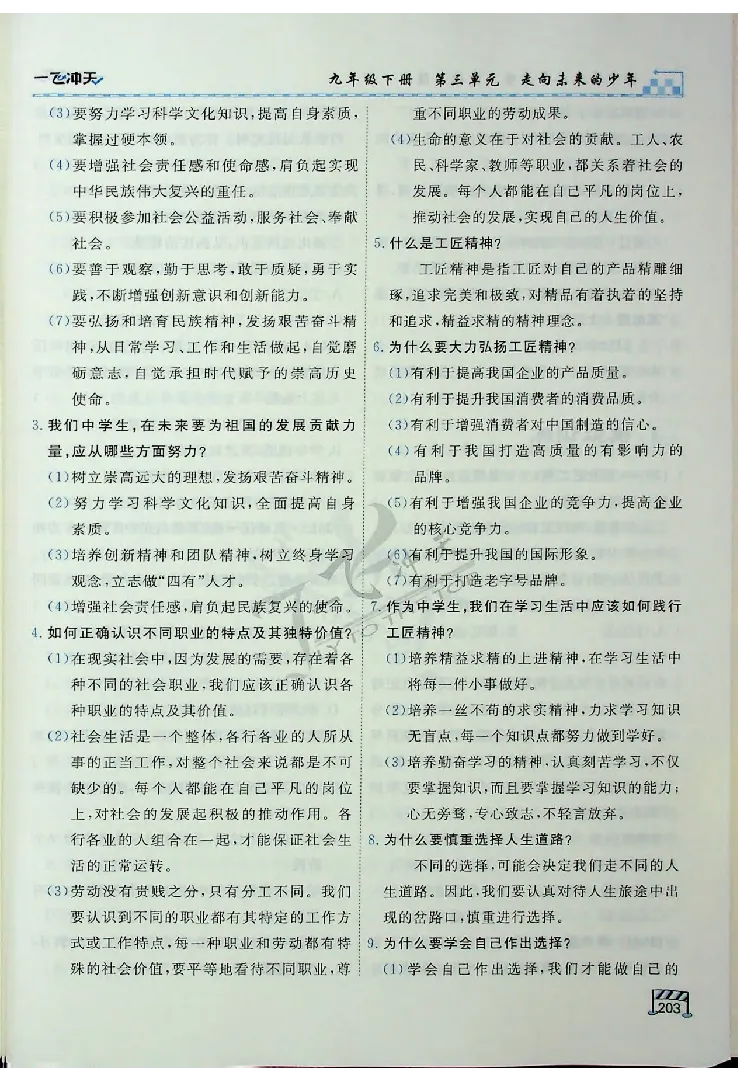 一飞冲天
九年级下册 第三单元 走向未来的少年
(3)要努力学习科学文化知识,提高自身素质,
掌握过硬本领。
(4)要增强社会责任感和使命感,肩负起实现
中华民族伟大复兴的重任。
(5)要积极参加社会公益活动,服务社会、奉献
社会。
(6)要善于观察,勤于思考,敢于质疑,勇于实
践,不断增强创新意识和创新能力。
(7)要弘扬和培育民族精神,发扬艰苦奋斗精
神,从日常学习、工作和生活做起,自觉磨
砺意志,自觉承担时代赋予的崇高历史
使命。
3. 我们中学生,在未来要为祖国的发展贡献力
量,应从哪些方面努力?
(1)树立崇高远大的理想,发扬艰苦奋斗精神。
(2)努力学习科学文化知识,全面提高自身
素质。
(3)培养创新精神和团队精神,树立终身学习
观念,立志做“四有”人才。
(4)增强社会责任感,肩负起民族复兴的使命。
4. 如何正确认识不同职业的特点及其独特价值?
(1)在现实社会中,因为发展的需要,存在着各
种不同的社会职业,我们应该正确认识各
种职业的特点及其价值。
(2)社会生活是一个整体,各行各业的人所从
事的正当工作,对整个社会来说都是不可
缺少的。每个人都能在自己平凡的岗位
上,对社会的发展起积极的推动作用。各
行各业的人组合在一起,才能保证社会生
活的正常运转。
(3)劳动没有贵贱之分,只有分工不同。我们
要认识到不同的职业都有其特定的工作方
式或工作特点,每一种职业和劳动都有特
殊的社会价值,要平等地看待不同职业,尊
重不同职业的劳动成果。
(4)生命的意义在于对社会的贡献。工人、农
民、科学家、教师等职业,都关系着社会的
发展。每个人都能在自己平凡的岗位上,
推动社会的发展,实现自己的人生价值。
5. 什么是工匠精神?
工匠精神是指工匠对自己的产品精雕细
琢,追求完美和极致,对精品有着执着的坚持
和追求,精益求精的精神理念。
6. 为什么要大力弘扬工匠精神?
(1)有利于提高我国企业的产品质量。
(2)有利于提升我国消费者的消费品质。
(3)有利于增强消费者对中国制造的信心。
(4)有利于我国打造高质量的有影响力的
品牌。
(5)有利于增强我国企业的竞争力,提高企业
的核心竞争力。
(6)有利于提升我国的国际形象。
(7)有利于打造老字号品牌。
7. 作为中学生,我们在学习生活中应该如何践行
工匠精神?
(1)培养精益求精的上进精神,在学习生活中
将每一件小事做好。
(2)培养一丝不苟的求实精神,力求学习知识
无盲点,每一个知识点都努力做到学好。
(3)培养勤奋学习的精神,认真刻苦学习,不仅
要掌握知识,而且要掌握学习知识的能力;
心无旁骛,专心致志,不轻言放弃。
8. 为什么要慎重选择人生道路?
不同的选择,可能会决定我们走不同的人
生道路。因此,我们要认真对待人生旅途中出
现的岔路口,慎重进行选择。
9. 为什么要学会自己作出选择?
(1)学会自己作出选择,我们才能做自己的
203